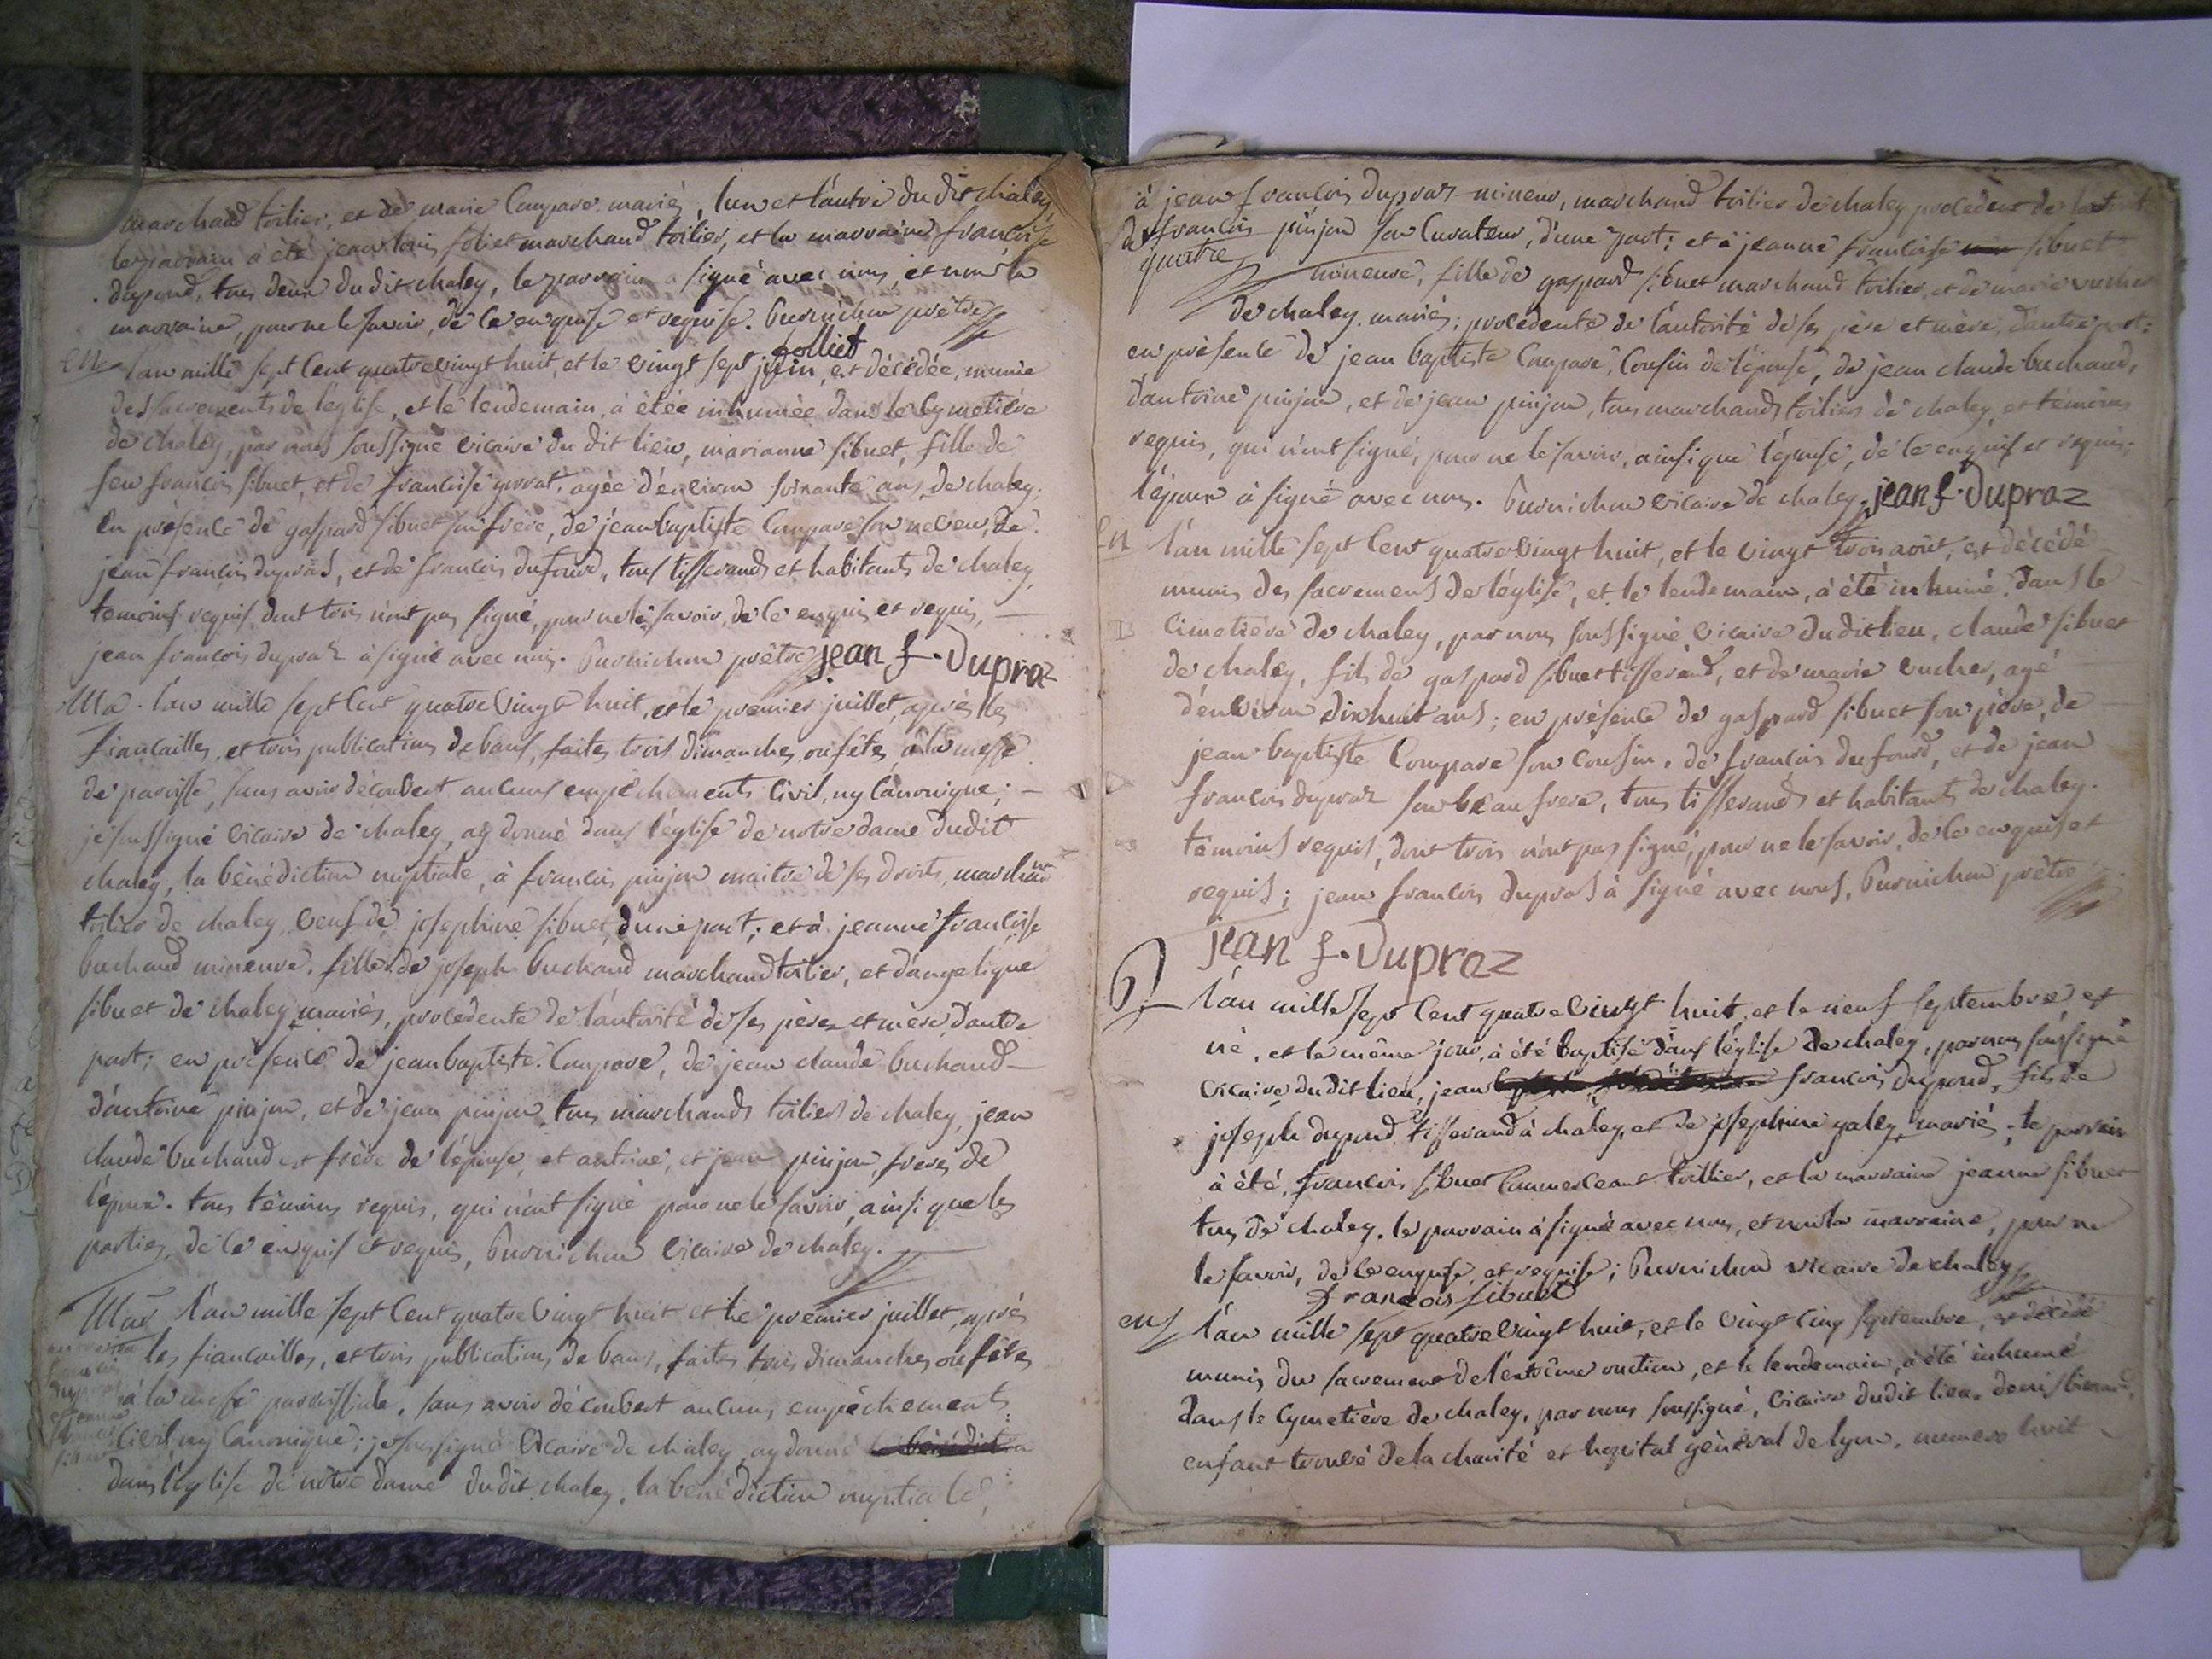 marchand toilier, et de marie Compare mariés, l'un et l'autre du dit chaley
le parrain a été jean louis foliet marchand toilier, et la marraine francoise
dupond, tous deux du dit chaley, le parrain a signé avec nous, et non la
marraine, pour ne le savoir, de ce enquise et requise. Purnichon prêtre
folliet
En L'an mille sept cent quatre vingt huit, et le vingt sept juin, est décédée, munie
des sacrements de l'église, et le lendemain, a étée inhumée dans le Cymetiére
de chaley, par nous soussigné vicaire du dit lieu, marianne sibuet, fille de
feu francois sibuet, et de francoise agée d'environ soixante ans, de chaley;
En présence de gaspard sibuet son frère, de jean baptiste Compare son neveu, de
jean francois dupras, et de francois dufourd, tous tisserands et habitants de chaley
temoins requis, dont trois n'ont pas signé, pour ne le savoir, de ce enquis et requis,
jean francois dupraz a signé avec nous. Purnichon prêtre jean f. Dupraz
Ma. L'an mille sept cent quatre vingt huit, et le premier juillet, aprés les
fiancailles, et trois publications de bans, faites trois dimanches ou fêtes, à la messe
de paroisse, sans avoir découvert aucuns empêchements civil, ny Canonique;
je soussigné vicaire de chaley, ay donné dans l'église de notre dame dudit
chaley, la bénédiction nuptiale, à francois pinjon maitre de ses droits, marchant
toilier de chaley, veuf de josephine sibuet, d'une part; et à jeanne francoise
buchand mineure, fille de joseph buchand marchand toilier, et d'angelique
sibuet de chaley mariés, procédente de l'autorité de ses pére et mére, d'autre
part; en présence de jean baptiste Compare, de jean claude buchand
d'antoine pinjon, et de jean pinjon, tous marchands toiliers de chaley, jean
claude buchand est frère de l'épouse, et antoine, et jean pinjon, freres de
l'époux. tous témoins requis, qui n'ont signé pour ne le savoir, ainsi que les
parties, de ce enquis et requis, Purnichon vicaire de chaley.
Mar L'an mille sept cent quatre vingt huit et le premier juillet, aprés
les fiancailles, et trois publications de bans, faites trois dimanches ou fêtes
à la messe parroissiale, sans avoir découvert aucuns empêchements
civil ny Canonique; je soussigné vicaire de chaley ay donné la bénédiction
dans l'église de nôtre dame du dit chaley, la bénédiction nuptiale,
à jean francois dupraz mineur, marchand toilier de chaley procédent de
de francois pinjon son Curateur, d'une part; et à jeanne francoise sibuet
quatre mineure, fille de gaspard sibuet marchand toilier, et de marie vucher
de chaley mariés; procédente de l'autorité de ses père et mère, d'autre part:
en présence de jean baptiste Compare, Cousin de l'épouse, de jean claude buchand,
d'antoine pinjon, et de jean pinjon, tous marchands toiliers de chaley, et témoins
requis, qui n'ont signé, pour ne le savoir, ainsi que l'épouse, de ce enquis et requis;
l'époux a signé avec nous. Purnichon vicaire de chaley. jean f. Dupraz
En L'an mille sept cent quatre vingt huit, et le vingt trois août, est décédé
munis des sacremens de l'église, et le lendemain, a été inhumé dans le
Cimetiére de chaley, par nous soussigné vicaire dudit lieu, claude sibuet
de chaley, fils de gaspard sibuet tisserand, et de marie vucher, agé
d'environ dixhuit ans; en présence de gaspard sibuet son pére, de
jean baptiste Compare son cousin, de francois dufourd, et de jean
francois dupraz son beau frere, tous tisserands et habitants de chaley.
témoins requis, dont trois n'ont pas signé, pour ne le savoir, de ce enquis et
requis; jean francois dupras a signé avec nous, Purnichon prêtre
jean f. Dupraz
B. L'an mille sept cent quatre vingt huit, et le neuf septembre est
né, et le même jour, a été baptisé dans l'église de chaley, par nous soussigné
vicaire du dit lieu, jean francois dupond, fils de
joseph dupond tisserand à chaley, et de josephine galley mariés; le parrain
a été, francois sibuet Commerceant toillier, et la marraine jeanne sibuet
tous de chaley. le parrain a signé avec nous, et non la marraine, pour ne
le savoir, de ce enquise, et requise; Purnichon vicaire de chaley
francois sibuet
En L'an mille sept quatre vingt huit, et le vingt cinq septembre, est décédé
munis du sacrement de l'extrême onction, et le lendemain, a été inhumé
dans le Cymetiére de chaley, par nous soussigné, vicaire dudit lieu, denis
enfant trouvé de la charité et hopital général de lyon, numero huit